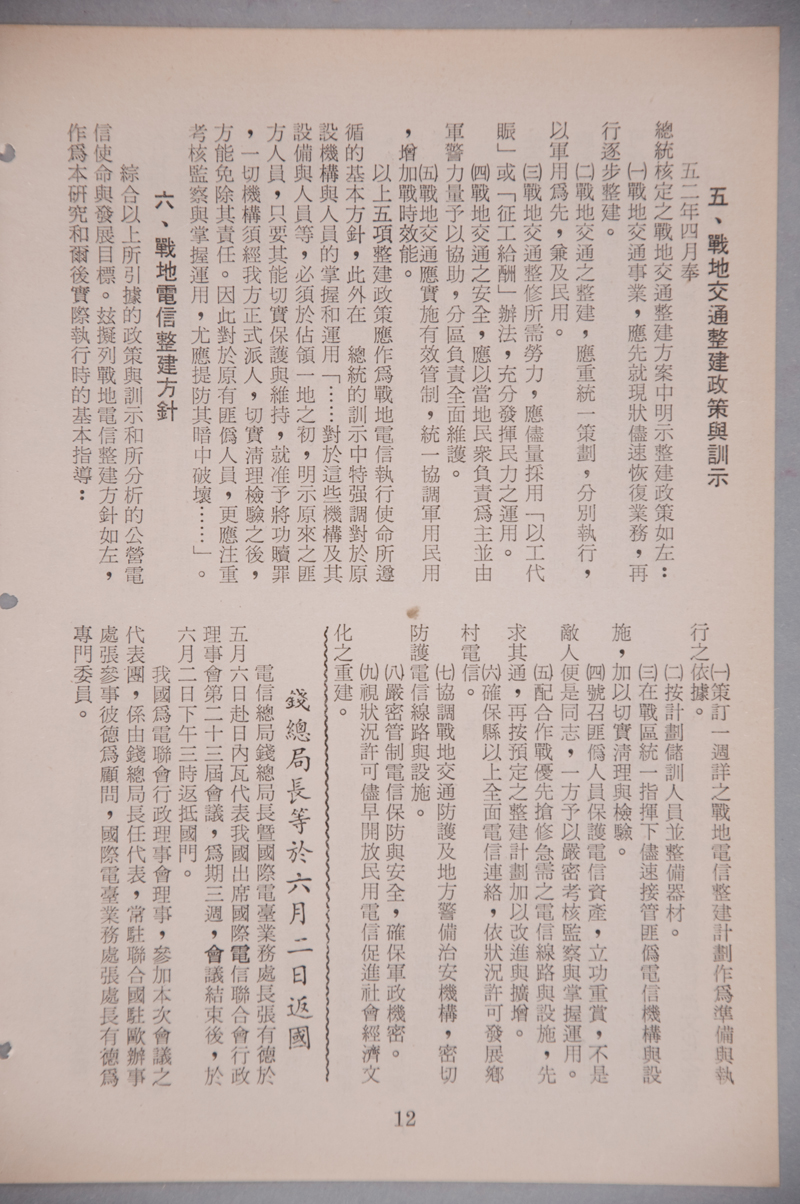 五、戰地交通整建政策與訓示
五二年四月奉
總統核定之戰地交通整建方案中明示整建政策如左：
㈠戰地交通事業，應先就現狀儘速恢復業務，再
行逐步整建。
㈡戰地交通之整建，應重統一策劃，分別執行，
以軍用爲先，兼及民用。
㈢戰地交通整修所需勞力，應儘量採用「以工代
賑」或「征工給酬」辦法，充分發揮民力之運用。
㈣戰地交通之安全，應以當地民衆負責爲主並由
軍警力量予以協助，分區負責全面維護。
㈤戰地交通應實施有效管制，統一協調軍用民用
，增加戰時效能。
以上五項整建政策應作爲戰地電信執行使命所遵
循的基本方針，此外在　總統的訓示中特强調對於原
設機構與人員的掌握和運用「……對於這些機構及其
設備與人員等，必須於佔領一地之初，明示原來之匪
方人員，只要其能切實保護與維持，就准予將功贖罪
，一切機構須經我方正式派人，切實淸理檢驗之後，
方能免除其責任。因此對於原有匪僞人員，更應注重
考核監察與掌握運用，尤應提防其暗中破壞……」。
六、戰地電信整建方針
綜合以上所引據的政策與訓示和所分析的公營電
信使命與發展目標。玆擬列戰地電信整建方針如左，
作爲本研究和爾後實際執行時的基本指導：
㈠策訂一週詳之戰地電信整建計劃作爲準備與執
行之依據。
㈡按計劃儲訓人員並整備器材。
㈢在戰區統一指揮下儘速接管匪僞電信機構與設
施，加以切實淸理與檢驗。
㈣號召匪僞人員保護電信資產，立功重賞，不是
敵人便是同志，一方予以嚴密考核監察與掌握運用。
㈤配合作戰優先搶修急需之電信線路與設施，先
求其通，再按預定之整建計劃加以改進與擴增。
㈥確保縣以上全面電信連絡，依狀況許可發展鄉
村電信。
㈦協調戰地交通防護及地方警備治安機構，密切
防護電信線路與設施。
㈧嚴密管制電信保防與安全，確保軍政機密。
㈨視狀況許可儘早開放民用電信促進社會經濟文
化之重建。
錢總局長等於六月二日返國
電信總局錢總局長暨國際電臺業務處長張有德於
五月六日赴日內瓦代表我國出席國際電信聯合會行政
理事會第二十三屆會議，爲期三週，會議結束後，於
六月二日下午三時返抵國門。
我國爲電聯會行政理事會理事，參加本次會議之
代表團，係由錢總局長任代表，常駐聯合國駐歐辦事
處張參事彼德爲顧問，國際電臺業務處張處長有德爲
專門委員。
12